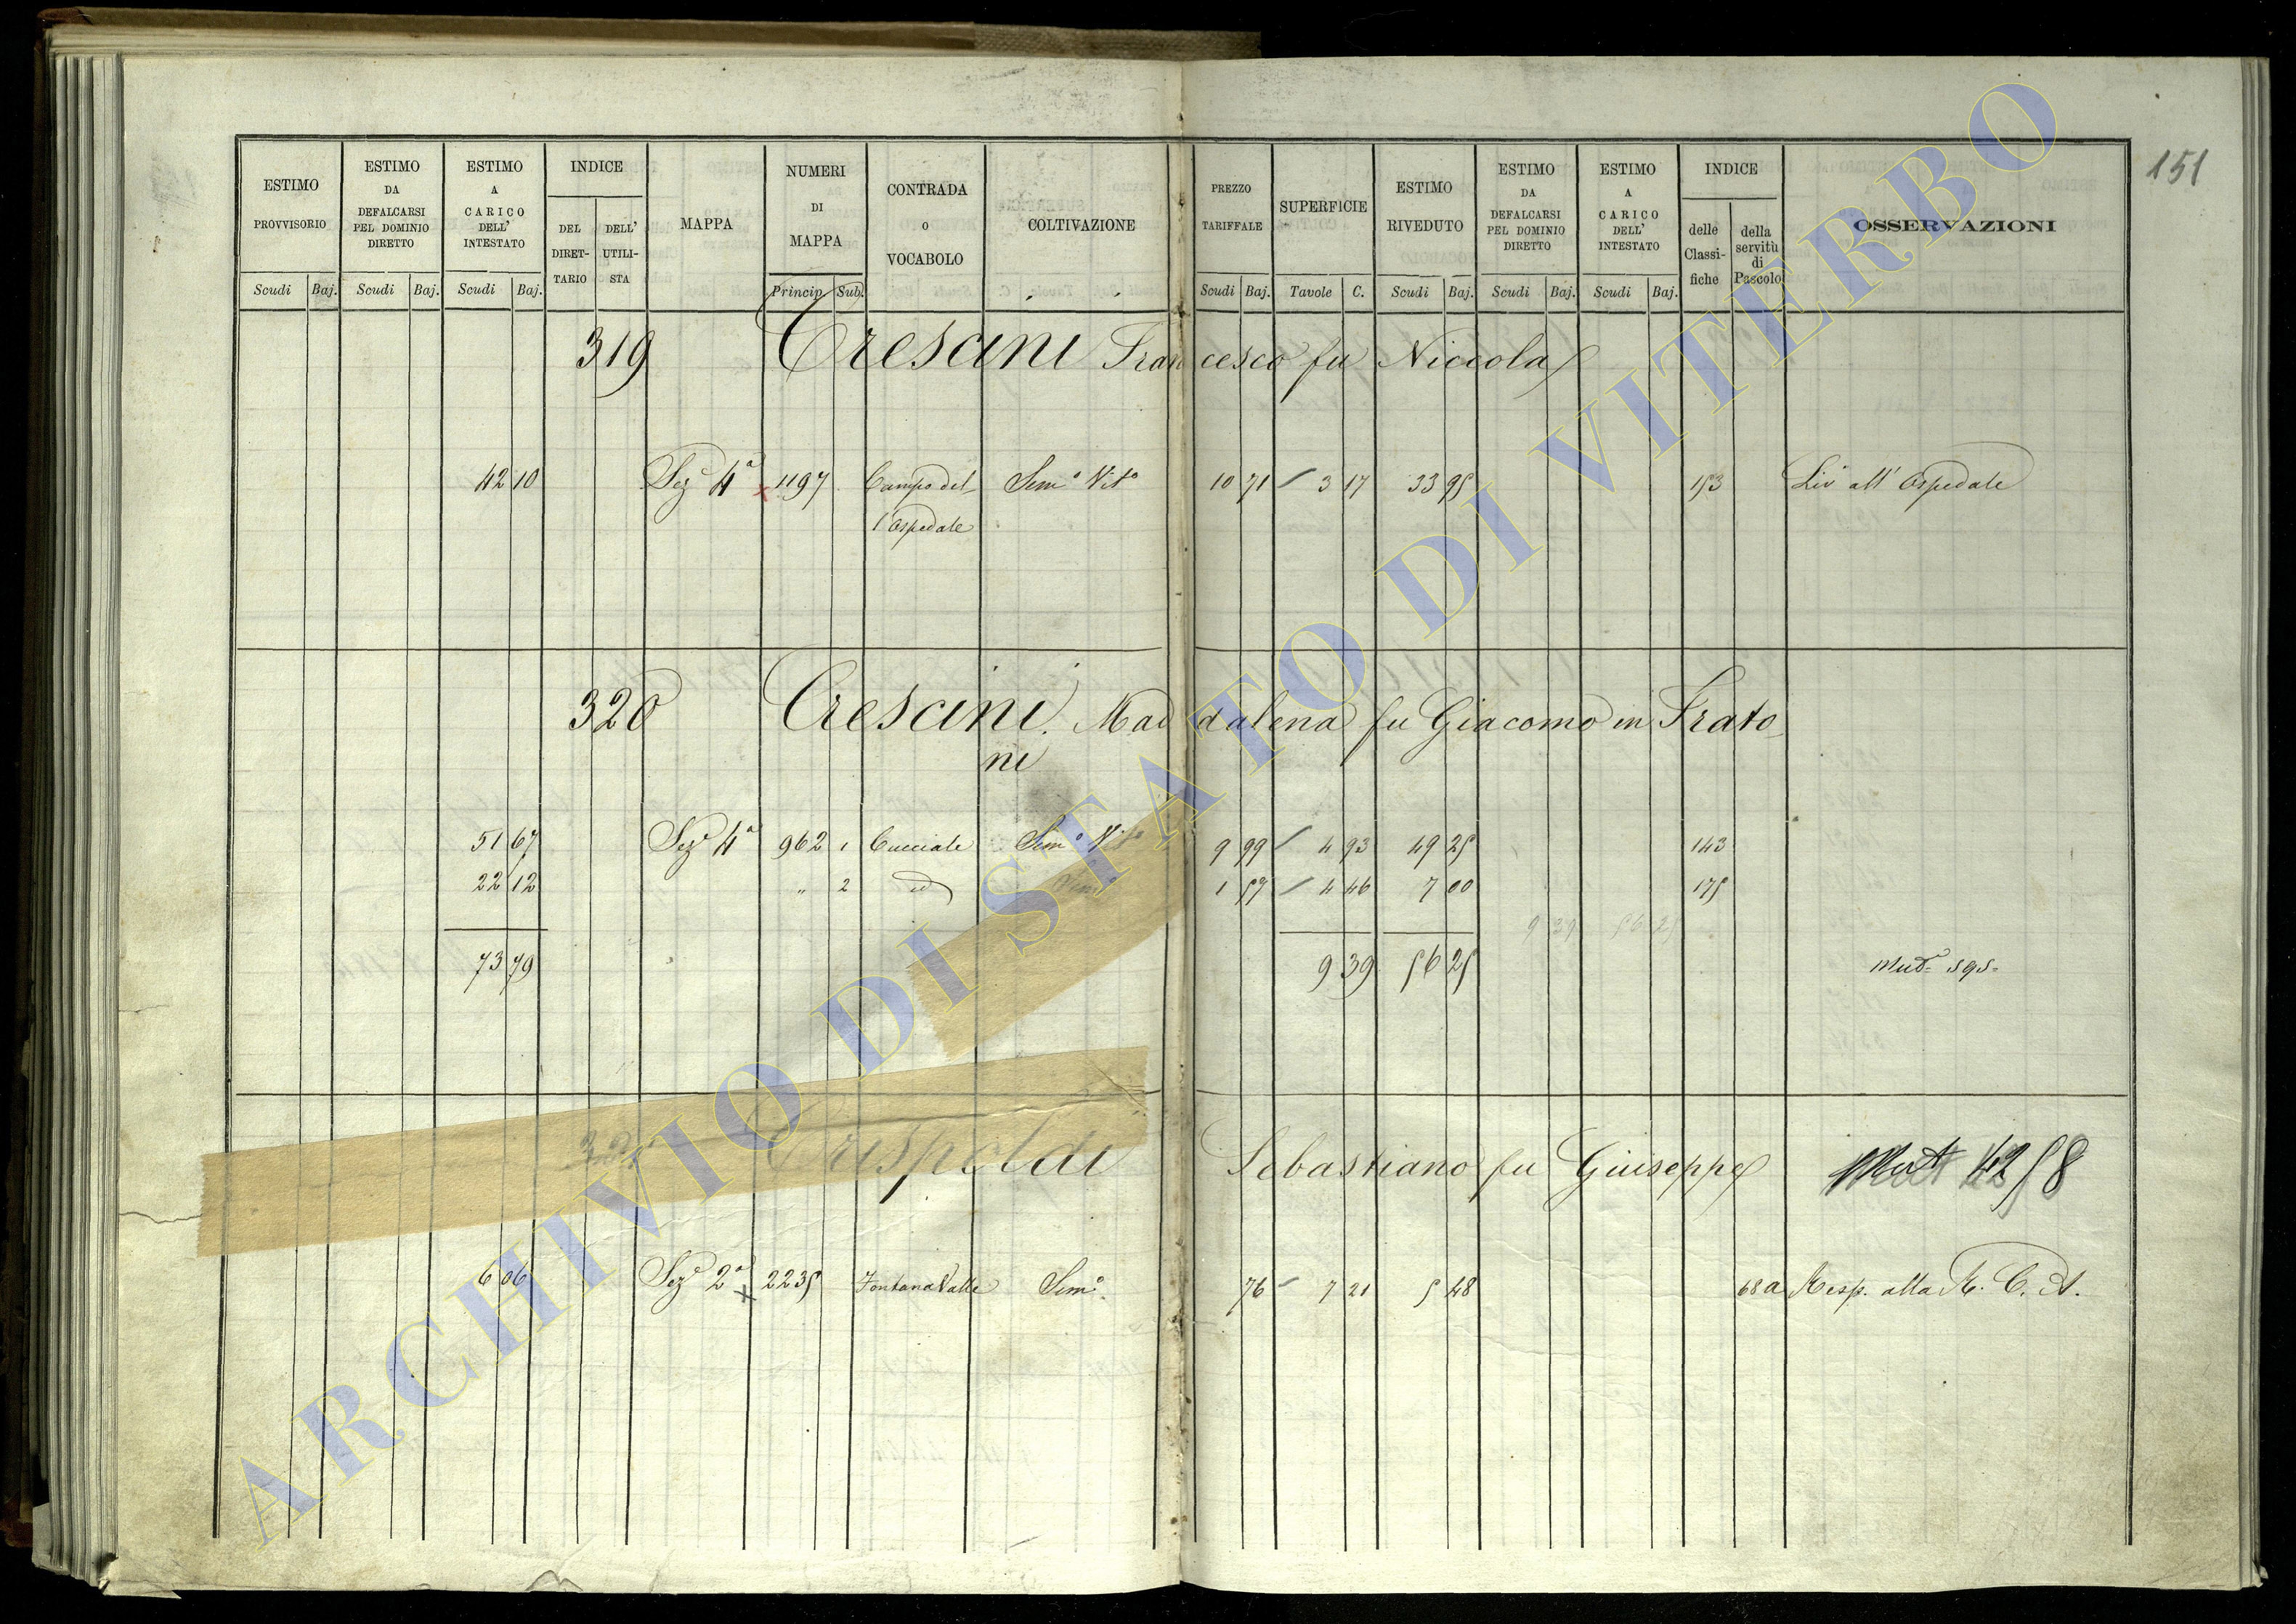 151
ESTIMO PROVVISORIO
ESTIMO DA DEFALCARSI PEL DOMINIO DIRETTO
ESTIMO A CARICO DELL' INTESTATO
INDICE
DEL DIRETTARIO
DELL' UTILISTA
MAPPA
NUMERI DI MAPPA
CONTRADA o VOCABOLO
COLTIVAZIONE
PREZZO TARIFFALE
SUPERFICIE
ESTIMO RIVEDUTO
ESTIMO DA DEFALCARSI PEL DOMINIO DIRETTO
ESTIMO A CARICO DELL' INTESTATO
INDICE
delle Classifiche
della servitù di Pascolo
OSSERVAZIONI
Scudi Baj. Scudi Baj. Scudi Baj. Princip. Sub. Scudi Baj. Tavole C. Scudi Baj. Scudi Baj. Scudi Baj.
319 Crescini Francesco fu Niccola
42 10 Sezᵉ 4ª x 1197 Campo del Semº Vitº 10 71 / 3 17 33 95 153 Livº all' Ospedale
l'Ospedale
320 Crescini Maddalena fu Giacomo in Frato
ni
51 67 Sezᵉ 4ª 962 1 Cucciale Semº Vitº 9 99 / 4 93 49 25 143
22 12 " 2 id 1 57 / 4 46 7 00 175
9 39 56 25
73 79 9 39 56 25
321 Crispoldi Sebastiano fu Giuseppe Mut 4258
6 06 Sezᵉ 2ª x 2235 Fontana Valle Semº 76 / 7 21 5 48 68 a Resp. alla R. C. A.
ARCHIVIO DI STATO DI VITERBO